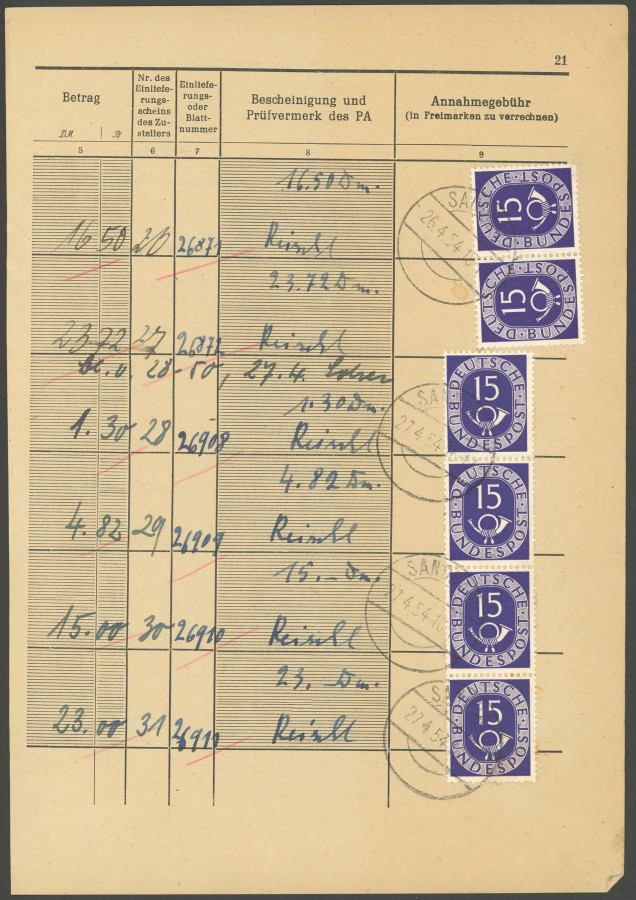 21
Betrag
DM Pf
Nr. des
Einliefe-
rungs-
scheins
des Zu-
stellers
Einliefe-
rungs-
oder
Blatt-
nummer
Bescheinigung und
Prüfvermerk des PA
Annahmegebühr
(in Freimarken zu verrechnen)
5 6 7 8 9
16.50 Dm.
16 50 20 26871 Reischl
23.72 Dm.
23.72 27 26872 Reischl
27.4.
1.30 Dm.
1. 30 28 26908 Reischl
4.82 Dm.
4. 82 29 26909 Reischl
15.– Dm.
15.00 30 26910 Reischl
23.– Dm.
23.00 31 26911 Reischl
DEUTSCHE BUNDESPOST 15
DEUTSCHE BUNDESPOST 15
DEUTSCHE BUNDESPOST 15
DEUTSCHE BUNDESPOST 15
DEUTSCHE BUNDESPOST 15
DEUTSCHE BUNDESPOST 15
26.4.54
27.4.54
27.4.54
27.4.54